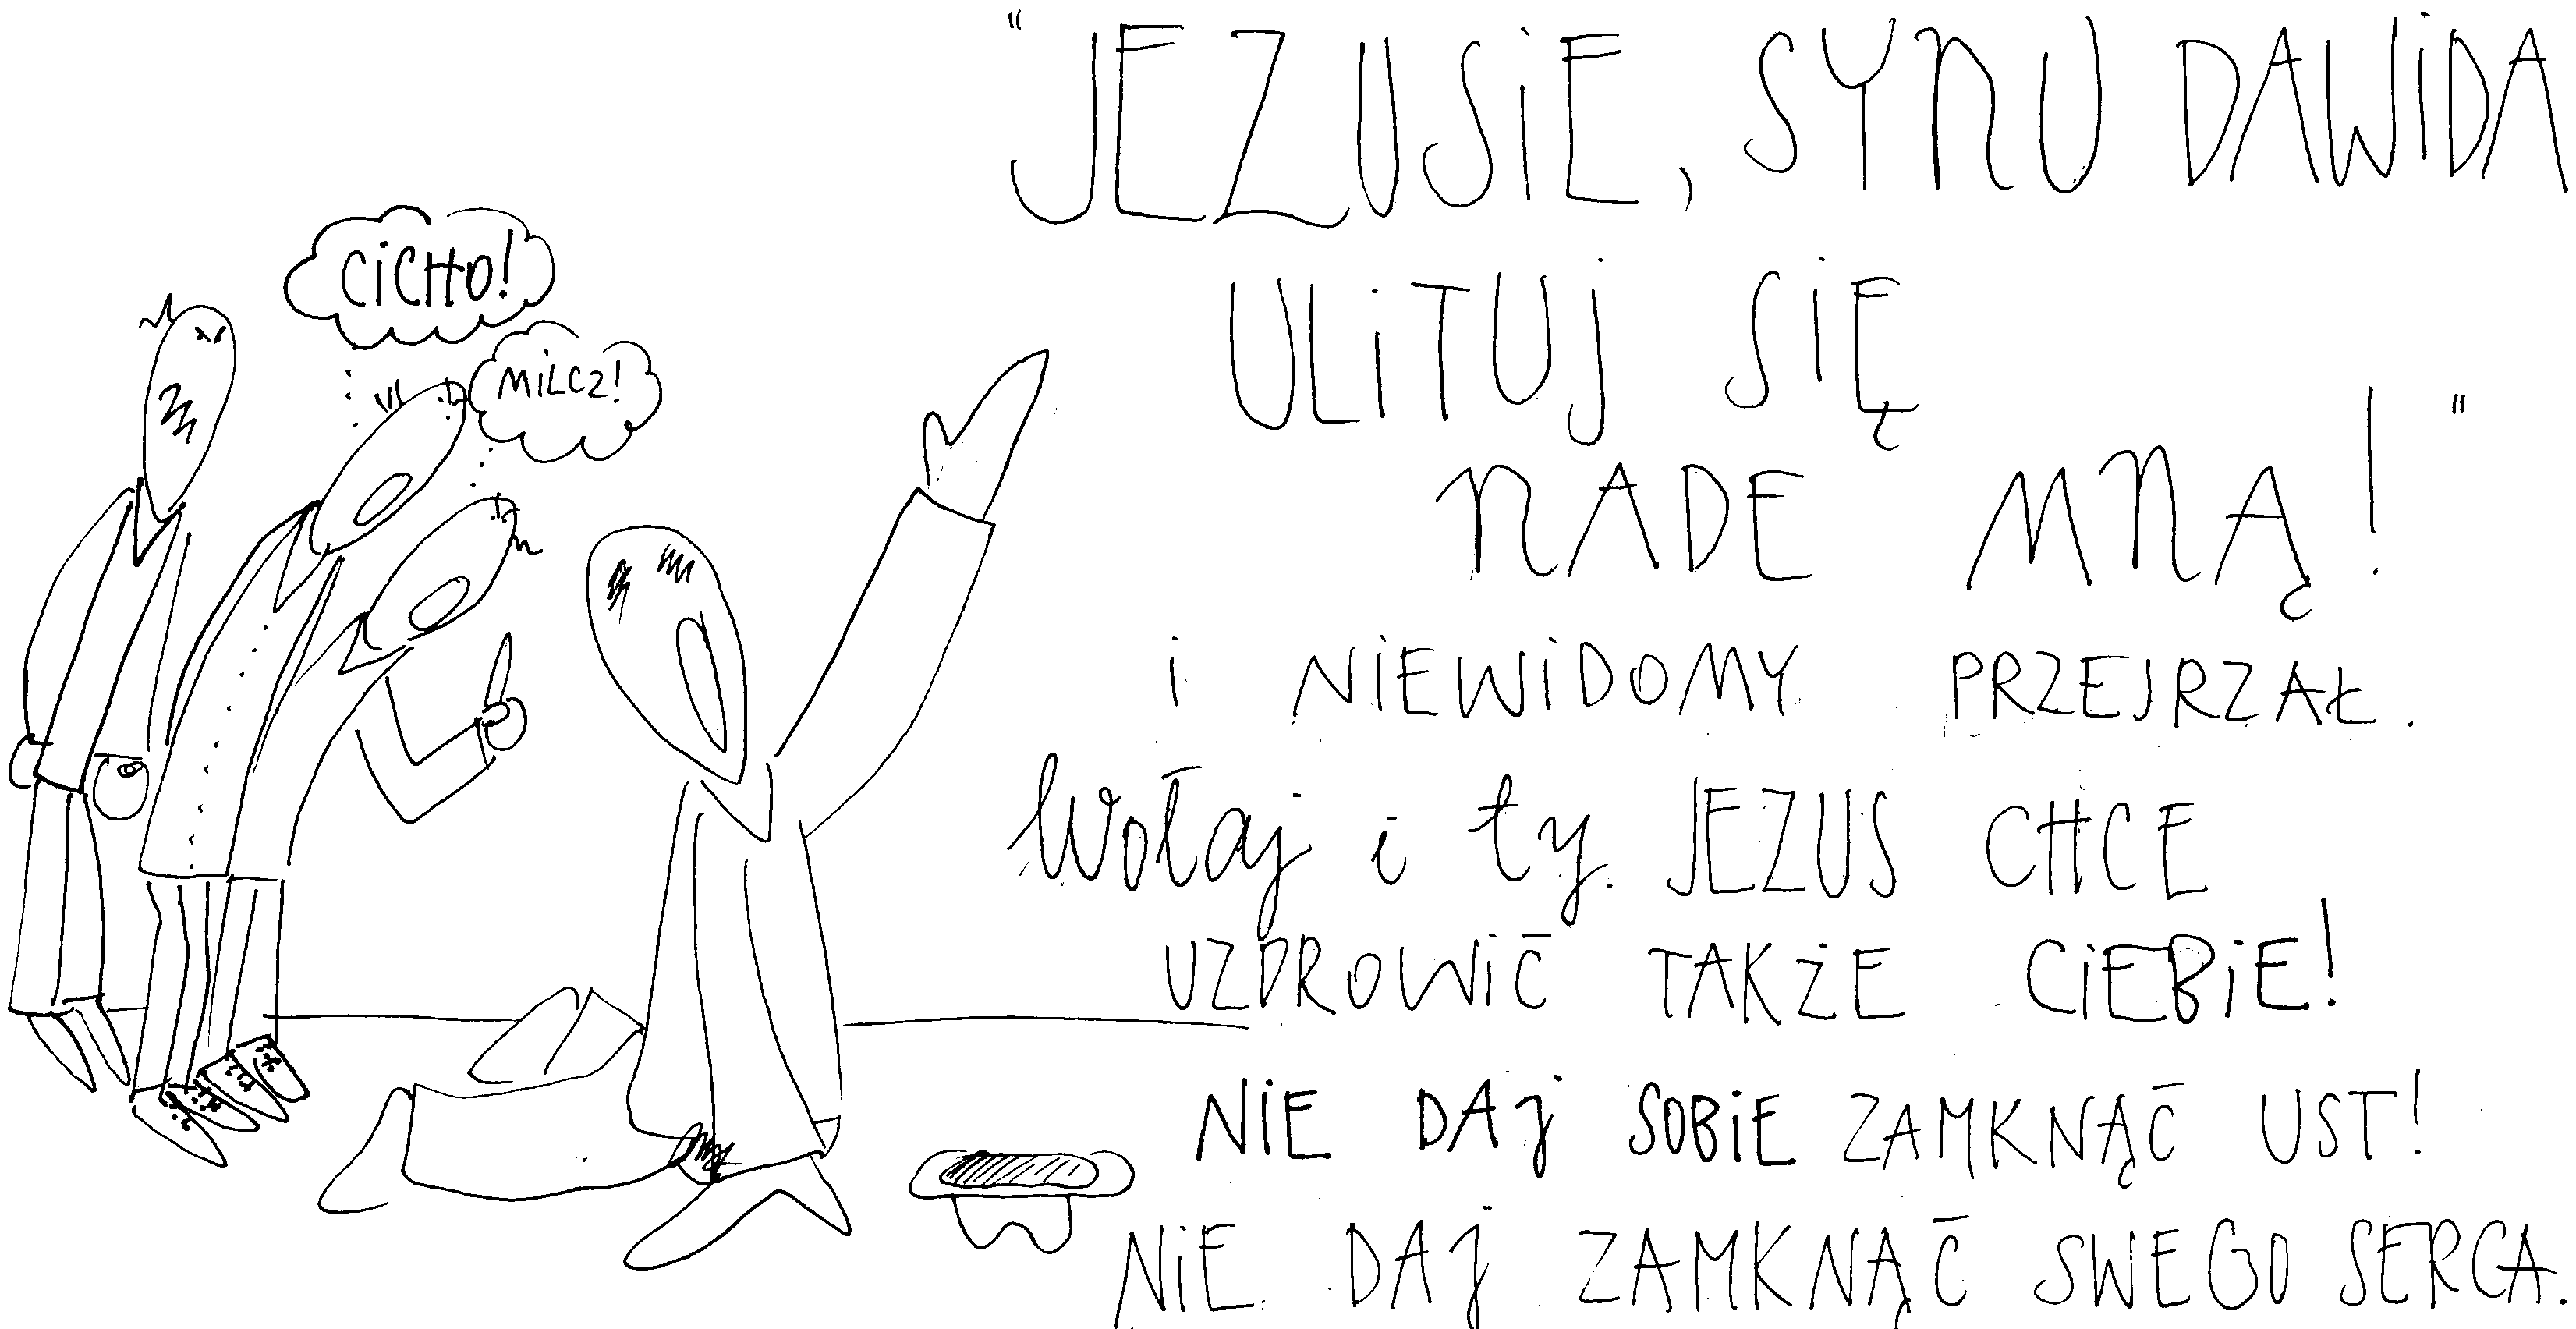 "JEZUSIE, SYNU DAWIDA
ULITUJ SIĘ
NADE MNĄ!"
I NIEWIDOMY PRZEJRZAŁ.
Wołaj i ty. JEZUS CHCE
UZDROWIĆ TAKŻE CIEBIE!
NIE DAJ SOBIE ZAMKNĄĆ UST!
NIE DAJ ZAMKNĄĆ SWEGO SERCA.
CICHO!
MILCZ!